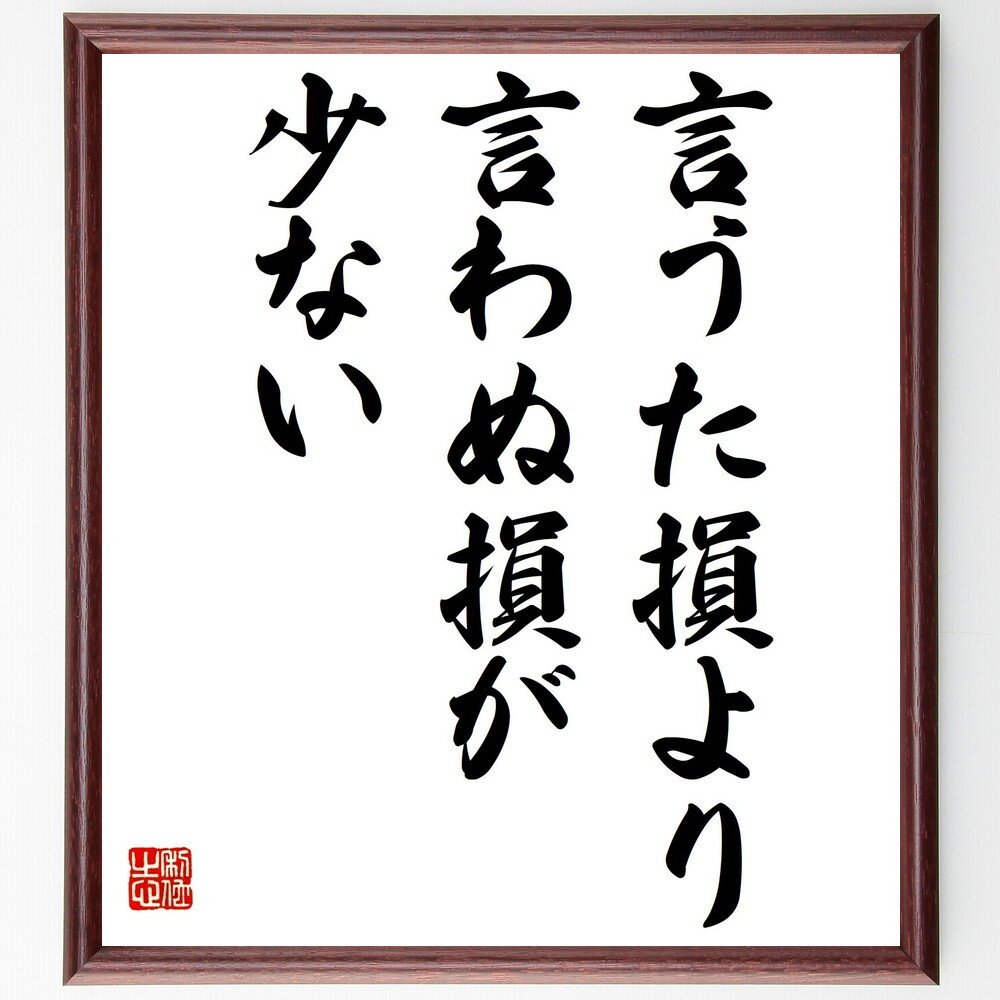 言うた損より
言わぬ損が
少ない